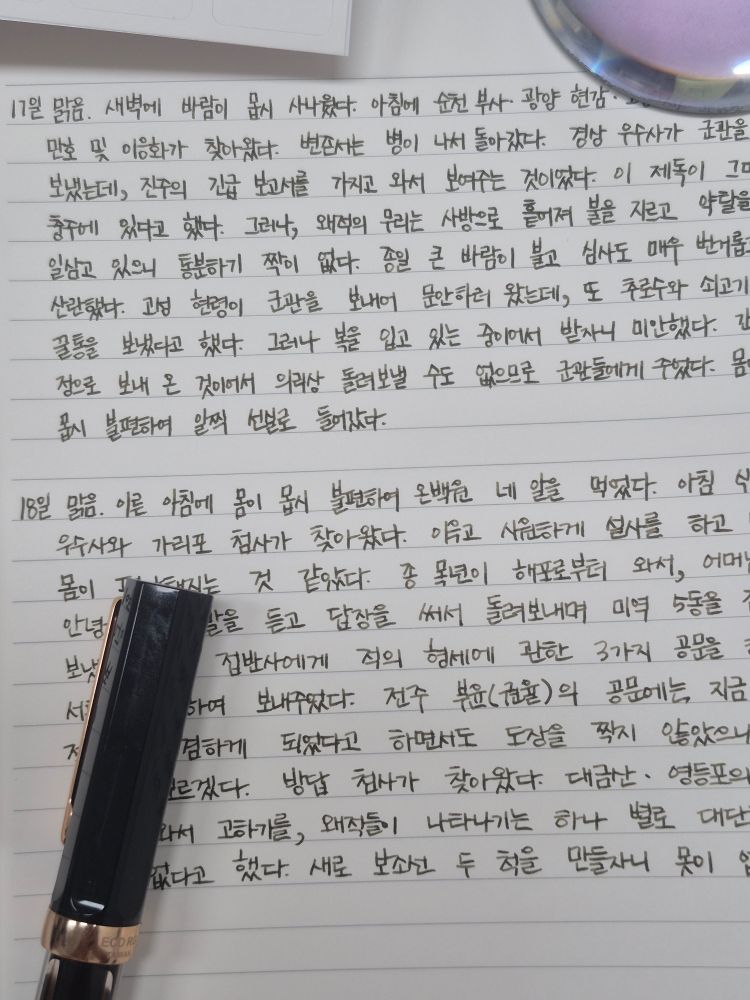 17일 맑음. 새벽에 바람이 몹시 사나웠다. 아침에 순천 부사·광양 현감·
만호 및 이응화가 찾아왔다. 변존서는 병이 나서 돌아갔다. 경상 우수사가 군관을
보냈는데, 진주의 긴급 보고서를 가지고 와서 보여주는 것이었다. 이 제독이
충주에 있다고 했다. 그러나, 왜적의 무리는 사방으로 흩어져 불을 지르고 약탈을
일삼고 있으니 통분하기 짝이 없다. 종일 큰 바람이 불고 심사도 매우
산란했다. 고성 현령이 군관을 보내어 문안하러 왔는데, 또 추로수와 쇠고기
꿀통을 보냈다고 했다. 그러나 복을 입고 있는 중이어서 받자니 미안했다.
정으로 보내 온 것이어서 의리상 돌려보낼 수도 없으므로 군관들에게 주었다.
몹시 불편하여 일찍 선실로 들어갔다.
18일 맑음. 이른 아침에 몸이 몹시 불편하여 온백원 네 알을 먹었다. 아침
우수사와 가리포 첨사가 찾아왔다. 이윽고 시원하게 설사를 하고
몸이 것 같았다. 종 목년이 해포로부터 와서,
듣고 답장을 써서 돌려보내며 미역 5동을
접반사에게 적의 형세에 관한 3가지 공문을
보내주었다. 전주 부윤(권율)의 공문에는, 지금
되었다고 하면서도 도장을 찍지 않았으니
방답 첨사가 찾아왔다. 대금산·영등포의
와서 고하기를, 왜적들이 나타나기는 하나 별로
없다고 했다. 새로 보좌선 두 척을 만들자니 못이
ECORI